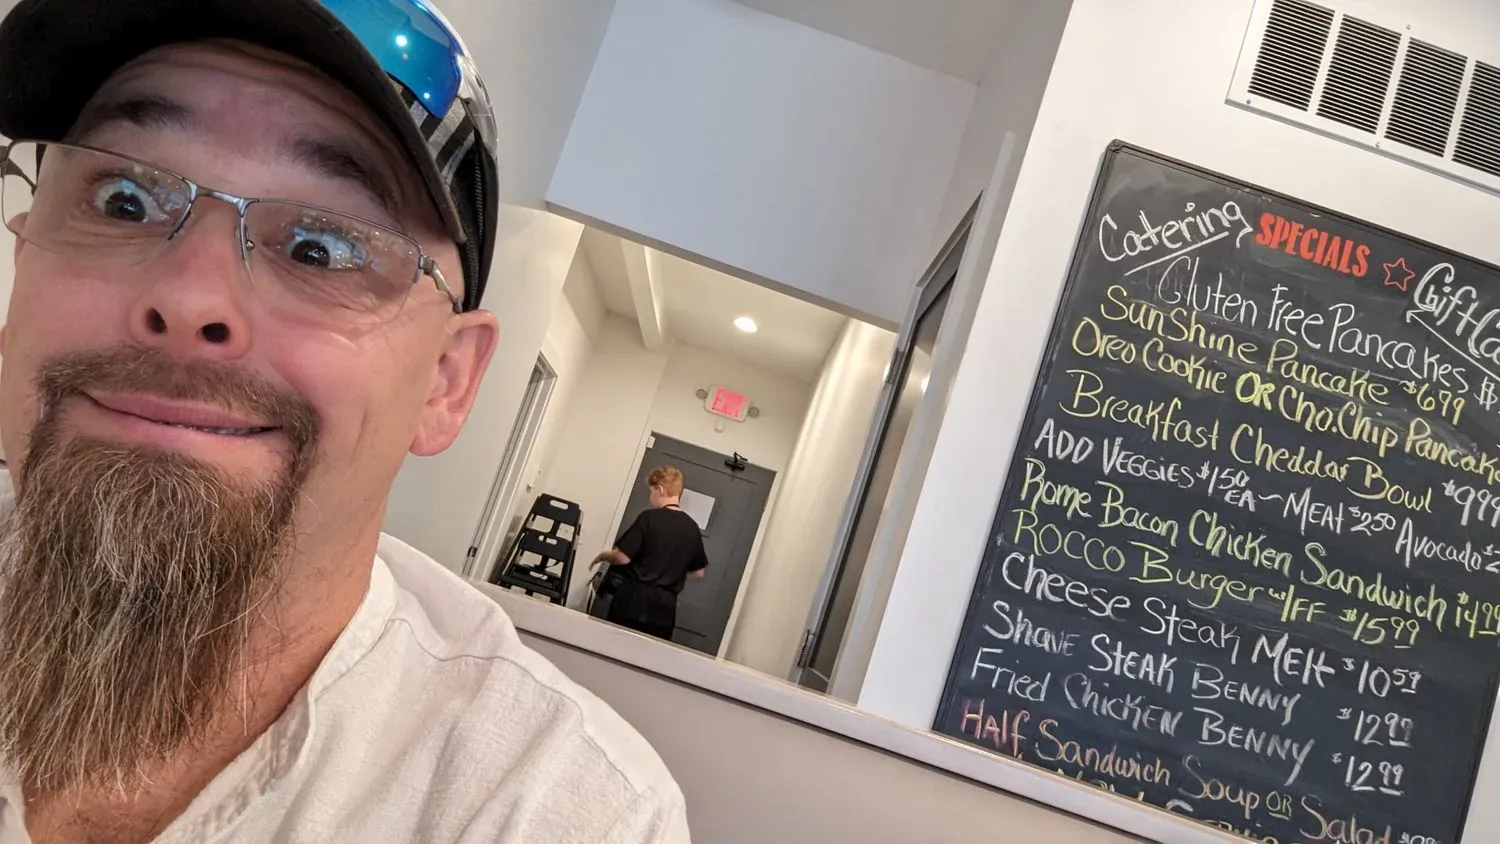 EXIT
Catering SPECIALS
Gift
Gluten Free Pancakes $
SunShine Pancake $6.99
Oreo Cookie OR Cho.Chip Pancake
Breakfast Cheddar Bowl $9.99
ADD VEGGIES $1.50 EA ~ MEAT $2.50 Avocado $2
Rome Bacon Chicken Sandwich $14.99
ROCCO Burger w/FF $15.99
Cheese Steak Melt $10.59
Shave STEAK BENNY $12.99
Fried CHICKEN BENNY $12.99
Half Sandwich Soup OR Salad